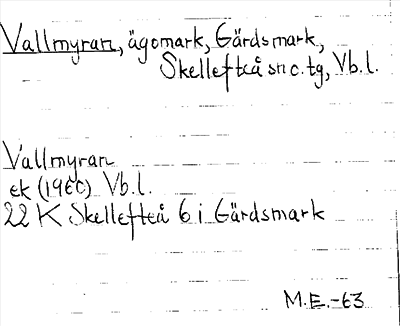 Vallmyran, ägomark, Gärdsmark,
Skellefteå sn c. tg, Vb. l.
Vallmyran
ek (1960) Vb. l.
22 K Skellefteå 6 i Gärdsmark
M.E.-63